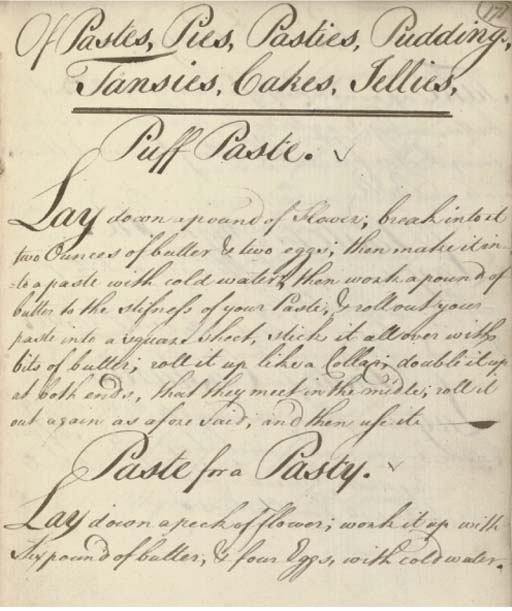 Of Pastes, Pies, Pasties, Pudding,
Tansies, Cakes, Jellies,
Puff Paste.
Lay down a pound of flower; break into it
two Ounces of butter & two eggs; then make it in=
=to a paste with cold water; then work a pound of
butter to the stifness of your Paste; & roll out your
paste into a square sheet, stick it all over with
bits of butter; roll it up like a Collar, double it up
at both ends, that they meet in the midle; roll it
out again as afore said, and then use it
Paste for a Pasty.
Lay down a peck of flower; work it up with
Six pound of butter, & four Eggs, with cold water.